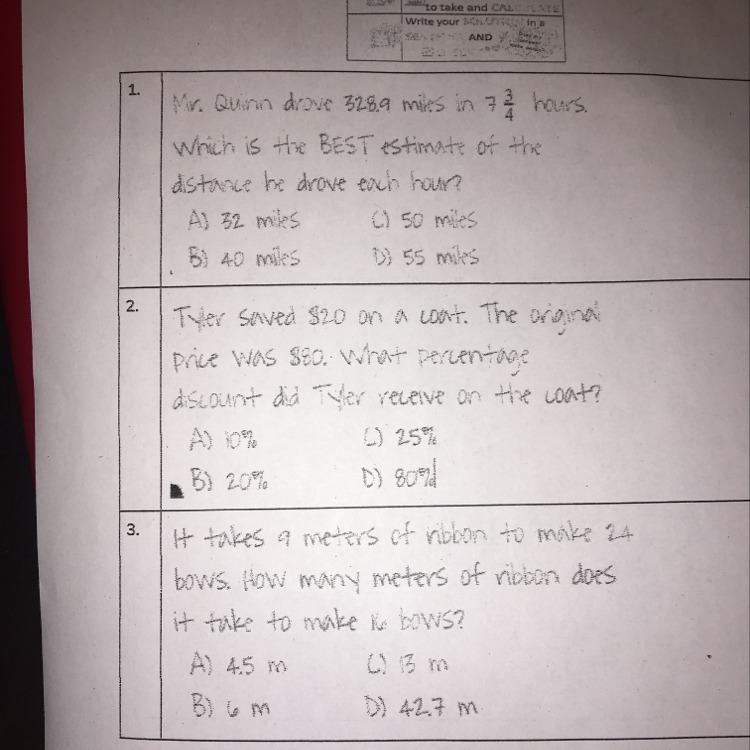 to take and CALCULATE
Write your SOLUTION in a
AND
1.
Mr. Quinn drove 328.9 miles in 7 3/4 hours.
Which is the BEST estimate of the
distance he drove each hour?
A) 32 miles C) 50 miles
B) 40 miles D) 55 miles
2.
Tyler saved $20 on a coat. The original
price was $80. What percentage
discount did Tyler receive on the coat?
A) 10% C) 25%
B) 20% D) 80%
3.
It takes 9 meters of ribbon to make 24
bows. How many meters of ribbon does
it take to make 16 bows?
A) 4.5 m C) 13 m
B) 6 m D) 42.7 m